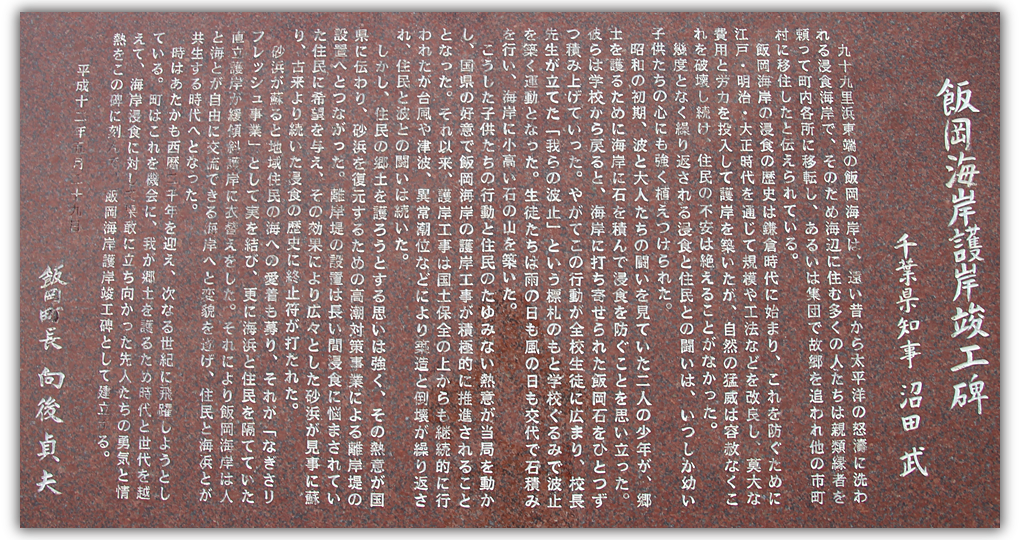 飯岡海岸護岸竣工碑
千葉県知事 沼田 武
九十九里浜東端の飯岡海岸は、遠い昔から太平洋の怒濤に洗わ
れる浸食海岸で、そのため海辺に住む多くの人たちは親類縁者を
頼って町内各所に移転し、あるいは集団で故郷を追われ他の市町
村に移住したと伝えられている。
飯岡海岸の浸食の歴史は鎌倉時代に始まり、これを防ぐために
江戸・明治・大正時代を通じて規模や工法などを改良し、莫大な
費用と労力を投入して護岸を築いたが、自然の猛威は容赦なくこ
れを破壊し続け、住民の不安は絶えることがなかった。
幾度となく繰り返される浸食と住民との闘いは、いつしか幼い
子供たちの心にも強く植えつけられた。
昭和の初期、波と大人たちの闘いを見ていた二人の少年が、郷
土を護るために海岸に石を積んで浸食を防ぐことを思い立った。
彼らは学校から戻ると、海岸に打ち寄せられた飯岡石をひとつず
つ積み上げていった。やがてこの行動が全校生徒に広まり、校長
先生が立てた「我らの波止」という標札のもと学校ぐるみで波止
を築く運動となった。生徒たちは雨の日も風の日も交代で石積み
を行い、海岸に小高い石の山を築いた。
こうした子供たちの行動と住民のたゆみない熱意が当局を動か
し、国県の好意で飯岡海岸の護岸工事が積極的に推進されること
となった。それ以来、護岸工事は国土保全の上からも継続的に行
われたが台風や津波、異常潮位などにより築造と倒壊が繰り返さ
れ、住民と波との闘いは続いた。
しかし、住民の郷土を護ろうとする思いは強く、その熱意が国
県に伝わり、砂浜を復元するための高潮対策事業による離岸堤の
設置へとつながった。離岸堤の設置は長い間浸食に悩まされてい
た住民に希望を与え、その効果により広々とした砂浜が見事に蘇
り、古来より続いた浸食の歴史に終止符が打たれた。
砂浜が蘇ると地域住民の海への愛着も募り、それが「なぎさリ
フレッシュ事業」として実を結び、更に海浜と住民を隔てていた
直立護岸が緩傾斜護岸に衣替えをした。それにより飯岡海岸は人
と海とが自由に交流できる海岸へと変貌を遂げ、住民と海浜とが
共生する時代へとなった。
時はあたかも西暦二千年を迎え、次なる世紀に飛躍しようとし
ている。町はこれを機会に、我が郷土を護るため時代と世代を越
えて、海岸浸食に対し果敢に立ち向かった先人たちの勇気と情
熱をこの碑に刻んで、飯岡海岸護岸竣工碑として建立する。
平成十二年 月二十九日
飯岡町長 向後貞夫